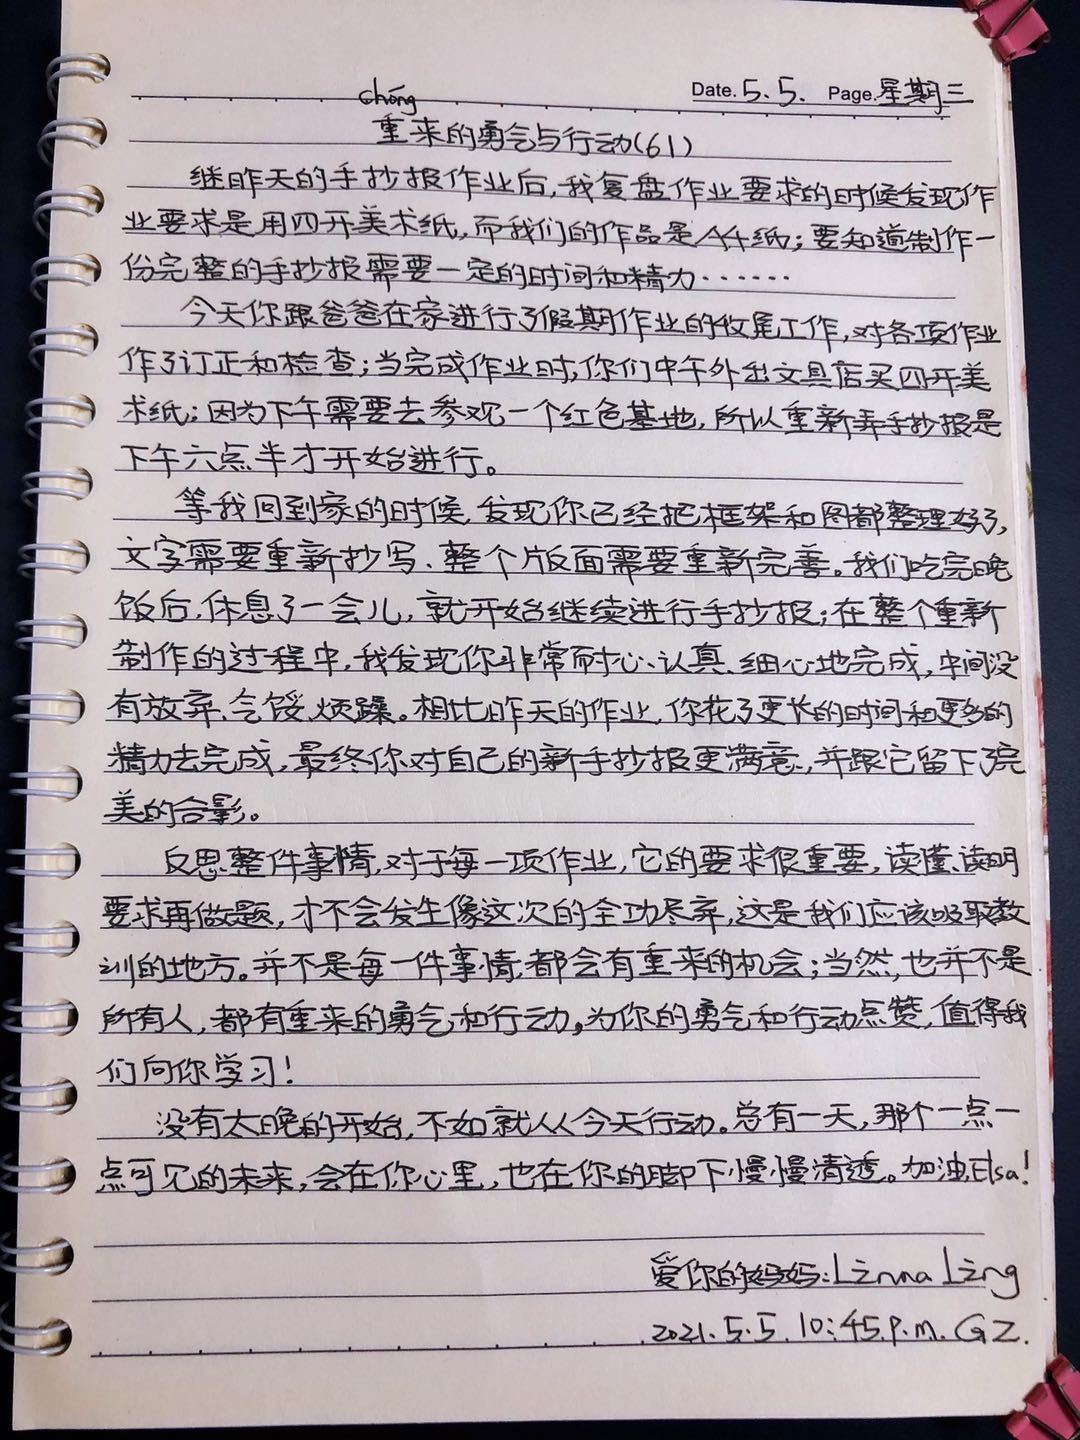 Date. 5.5. Page. 星期三
chóng
重来的勇气与行动(61)
继昨天的手抄报作业后,我复盘作业要求的时候发现作
业要求是用四开美术纸,而我们的作品是A4纸;要知道制作一
份完整的手抄报需要一定的时间和精力……
今天你跟爸爸在家进行了假期作业的收尾工作,对各项作业
作了订正和检查;当完成作业时,你们中午外出文具店买四开美
术纸;因为下午需要去参观一个红色基地,所以重新弄手抄报是
下午六点半才开始进行。
等我回到家的时候,发现你已经把框架和图都整理好了,
文字需要重新抄写、整个版面需要重新完善。我们吃完晚
饭后,休息了一会儿,就开始继续进行手抄报;在整个重新
制作的过程中,我发现你非常耐心、认真、细心地完成,中间没
有放弃、气馁、烦躁。相比昨天的作业,你花了更长的时间和更多的
精力去完成,最终你对自己的新手抄报更满意,并跟它留下了完
美的合影。
反思整件事情,对于每一项作业,它的要求很重要,读懂、读明
要求再做题,才不会发生像这次的全功尽弃,这是我们应该吸取教
训的地方。并不是每一件事情,都会有重来的机会;当然,也并不是
所有人,都有重来的勇气和行动,为你的勇气和行动点赞,值得我
们向你学习!
没有太晚的开始,不如就从今天行动。总有一天,那个一点一
点可见的未来,会在你心里,也在你的脚下慢慢清透。加油,Elsa!
爱你的妈妈:Linna Ling
2021.5.5. 10:45.P.m. GZ.